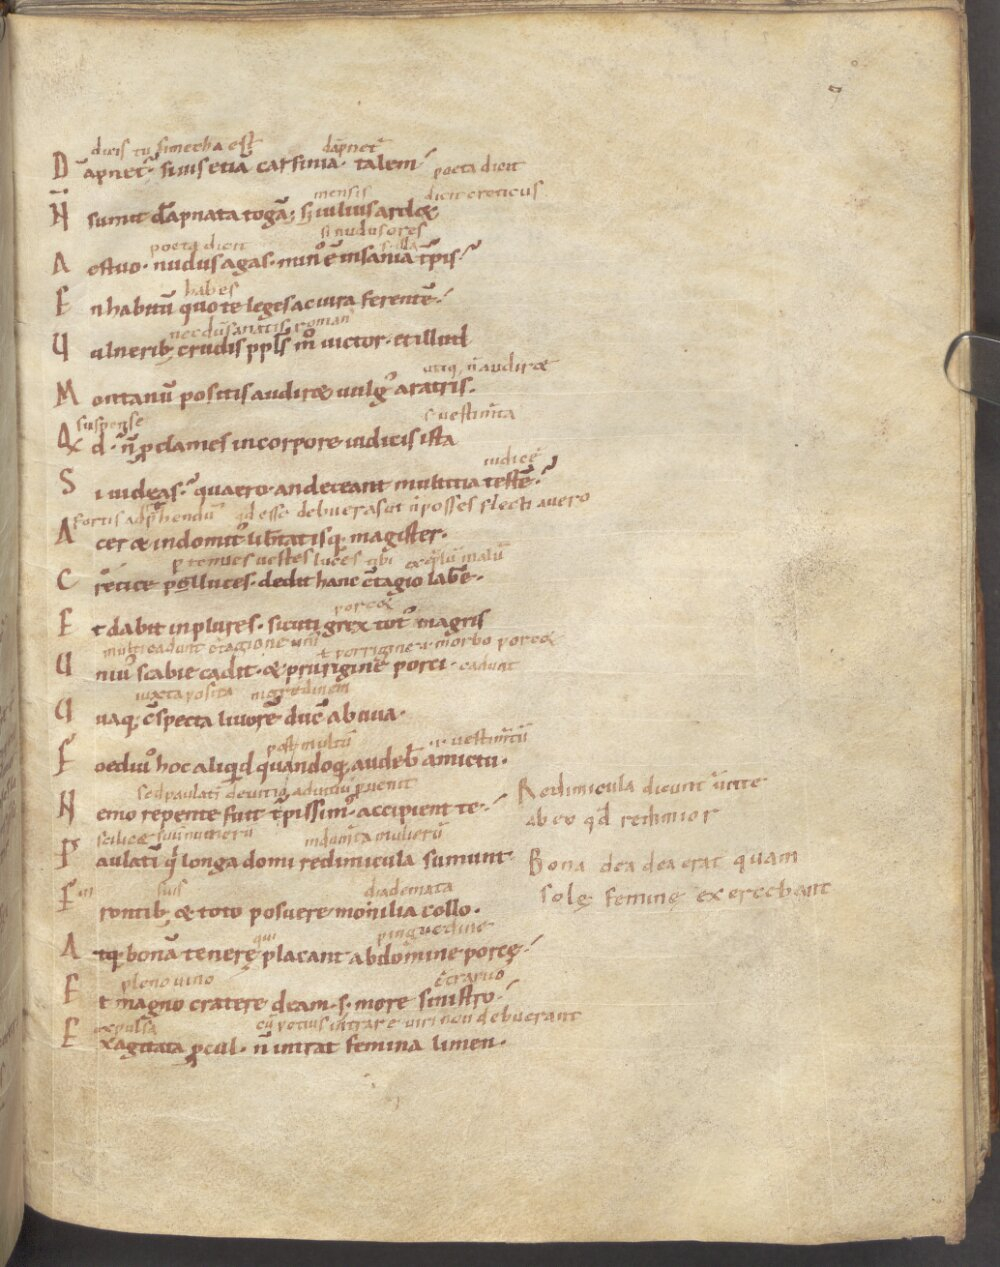 dicis tu simetha est dāpnet᷑
D āpnet᷑· si uis etiā carfinia· talem
poeta dicit
mensis dicit creticus
N̄ sumit dāpnata togā; S; iulius ardet
poeta dicit si nudus ores
A estuo· nudus agas· min᷒ ē insania t᷑pis
habes
E n habitū quo te leges ac iura ferentē
nec dū sanatis roman᷒
U ulnerib; crudis ppl᷒s m̊ uictor· et illud
utiq; n̄ audiret
M ontanū positis audiret uulg᷒ aratris·
suspense s· uestim̄ta
Q d· n̄ ꝓclames in corpore iudicis ista
iudicē
S i uideas·᷑ quaero· an deceant multitia testē·
fortis ad p̄hendū qd esse debueras ut n̄ posses flecti a uero
A cer et indomit᷒ lib᷑tatisq; magister·
ꝑ tenues uestes luces tibi exēplū malū
C retice ꝑlluces· dedit hanc c̄tagio labē·
porcoꝝ
E t dabit in plures· sicuti grex tot᷒ in agris
multi cadunt c̄tagione uni᷒ ł porrigine ·i· morbo porcoꝝ
U ni᷒ scabie cadit· et prurigine porci· cadunt
iuxta posita nigredinem
U uaq; c̄specta liuorē duc᷑ ab uua·
post multū ·i· uestim̄tū
F oedi᷒ hoc aliqid quandoq; audeb᷑ amictu·
sed paulati᷑ de uitio ad uitiū ꝑuenit
N emo repente fuit t᷑pissim᷒· accipient te·
scilicet sui numerū indum̄ta mulierū
P aulatī qi longa domi redimicula sumunt
in suis diademata
F rontib; et toto posuere monilia collo·
qui pinguedine
A tq; bonā tenerę placant abdomine porcę·
pleno uino c̄trario
E t magno cratere deam· s; more sinistro
expulsa cū potius intrare uiri non debuerant
E xagitata ꝓcul· n̄ intrat femina limen·
Redimicula dicunt᷑ uitte
ab eo qd redimior
Bona dea dea erat quam
solę feminę exercebant